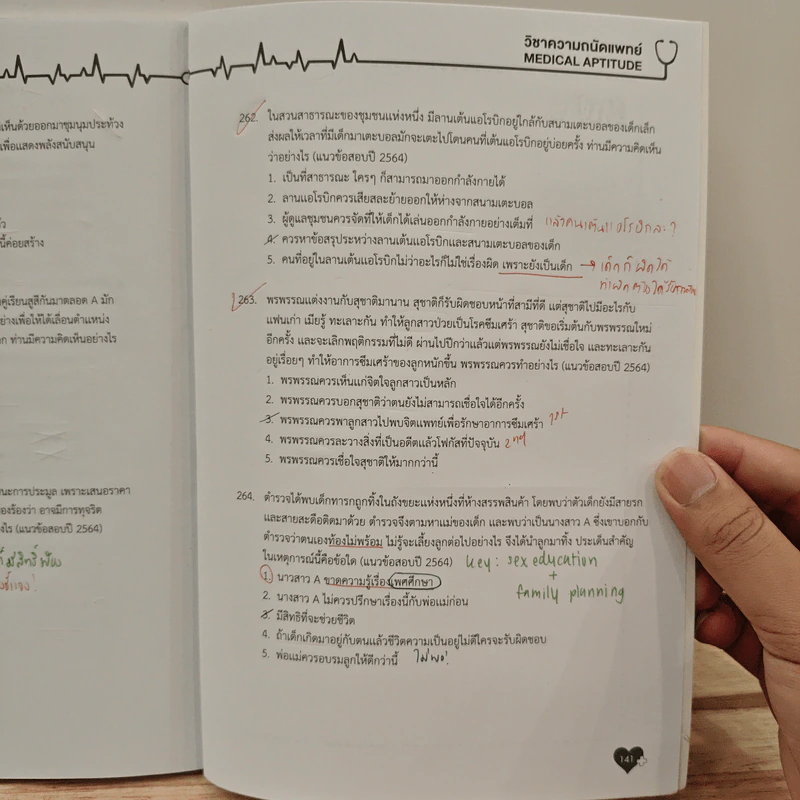 เห็นด้วยออกมาชุมนุมประท้วง
เพื่อแสดงพลังสนับสนุน
นี้ค่อยสร้าง
คู่เรียนสูสีกันมาตลอด A มัก
อย่างเพื่อให้ได้เลื่อนตำแหน่ง
ท่านมีความคิดเห็นอย่างไร
นะการประมูล เพราะเสนอราคา
องร้องว่า อาจมีการทุจริต
(แนวข้อสอบปี 2564)
วิชาความถนัดแพทย์
MEDICAL APTITUDE
262. ในสวนสาธารณะของชุมชนแห่งหนึ่ง มีลานเต้นแอโรบิกอยู่ใกล้กับสนามเตะบอลของเด็กเล็ก
ส่งผลให้เวลาที่มีเด็กมาเตะบอลมักจะเตะไปโดนคนที่เต้นแอโรบิกอยู่บ่อยครั้ง ท่านมีความคิดเห็น
ว่าอย่างไร (แนวข้อสอบปี 2564)
1. เป็นที่สาธารณะ ใครๆ ก็สามารถมาออกกำลังกายได้
2. ลานแอโรบิกควรเสียสละย้ายออกให้ห่างจากสนามเตะบอล
3. ผู้ดูแลชุมชนควรจัดที่ให้เด็กได้เล่นออกกำลังกายอย่างเต็มที่ แล้วคนเต้นแอโรบิกล่ะ?
4. ควรหาข้อสรุประหว่างลานเต้นแอโรบิกและสนามเตะบอลของเด็ก
5. คนที่อยู่ในลานเต้นแอโรบิกไม่ว่าอะไรก็ไม่ใช่เรื่องผิด เพราะยังเป็นเด็ก → เด็กก็ผิดได้
263. พรพรรณแต่งงานกับสุชาติมานาน สุชาติก็รับผิดชอบหน้าที่สามีที่ดี แต่สุชาติไปมีอะไรกับ
แฟนเก่า เมียรู้ ทะเลาะกัน ทำให้ลูกสาวป่วยเป็นโรคซึมเศร้า สุชาติขอเริ่มต้นกับพรพรรณใหม่
อีกครั้ง และจะเลิกพฤติกรรมที่ไม่ดี ผ่านไปปีกว่าแล้วแต่พรพรรณยังไม่เชื่อใจ และทะเลาะกัน
อยู่เรื่อยๆ ทำให้อาการซึมเศร้าของลูกหนักขึ้น พรพรรณควรทำอย่างไร (แนวข้อสอบปี 2564)
1. พรพรรณควรเห็นแก่จิตใจลูกสาวเป็นหลัก
2. พรพรรณควรบอกสุชาติว่าตนยังไม่สามารถเชื่อใจได้อีกครั้ง
3. พรพรรณควรพาลูกสาวไปพบจิตแพทย์เพื่อรักษาอาการซึมเศร้า 1st
4. พรพรรณควรละวางสิ่งที่เป็นอดีตแล้วโฟกัสที่ปัจจุบัน 2nd
5. พรพรรณควรเชื่อใจสุชาติให้มากกว่านี้
264. ตำรวจได้พบเด็กทารกถูกทิ้งในถังขยะแห่งหนึ่งที่ห้างสรรพสินค้า โดยพบว่าตัวเด็กยังมีสายรก
และสายสะดือติดมาด้วย ตำรวจจึงตามหาแม่ของเด็ก และพบว่าเป็นนางสาว A ซึ่งเขาบอกกับ
ตำรวจว่าตนเองท้องไม่พร้อม ไม่รู้จะเลี้ยงลูกต่อไปอย่างไร จึงได้นำลูกมาทิ้ง ประเด็นสำคัญ
ในเหตุการณ์นี้คือข้อใด (แนวข้อสอบปี 2564) key: sex education
+
1 นาวสาว A ขาดความรู้เรื่องเพศศึกษา
family planning
2. นางสาว A ไม่ควรปรึกษาเรื่องนี้กับพ่อแม่ก่อน
3. มีสิทธิที่จะช่วยชีวิต
4. ถ้าเด็กเกิดมาอยู่กับตนแล้วชีวิตความเป็นอยู่ไม่ดีใครจะรับผิดชอบ
5. พ่อแม่ควรอบรมลูกให้ดีกว่านี้ ไม่พอ!
141